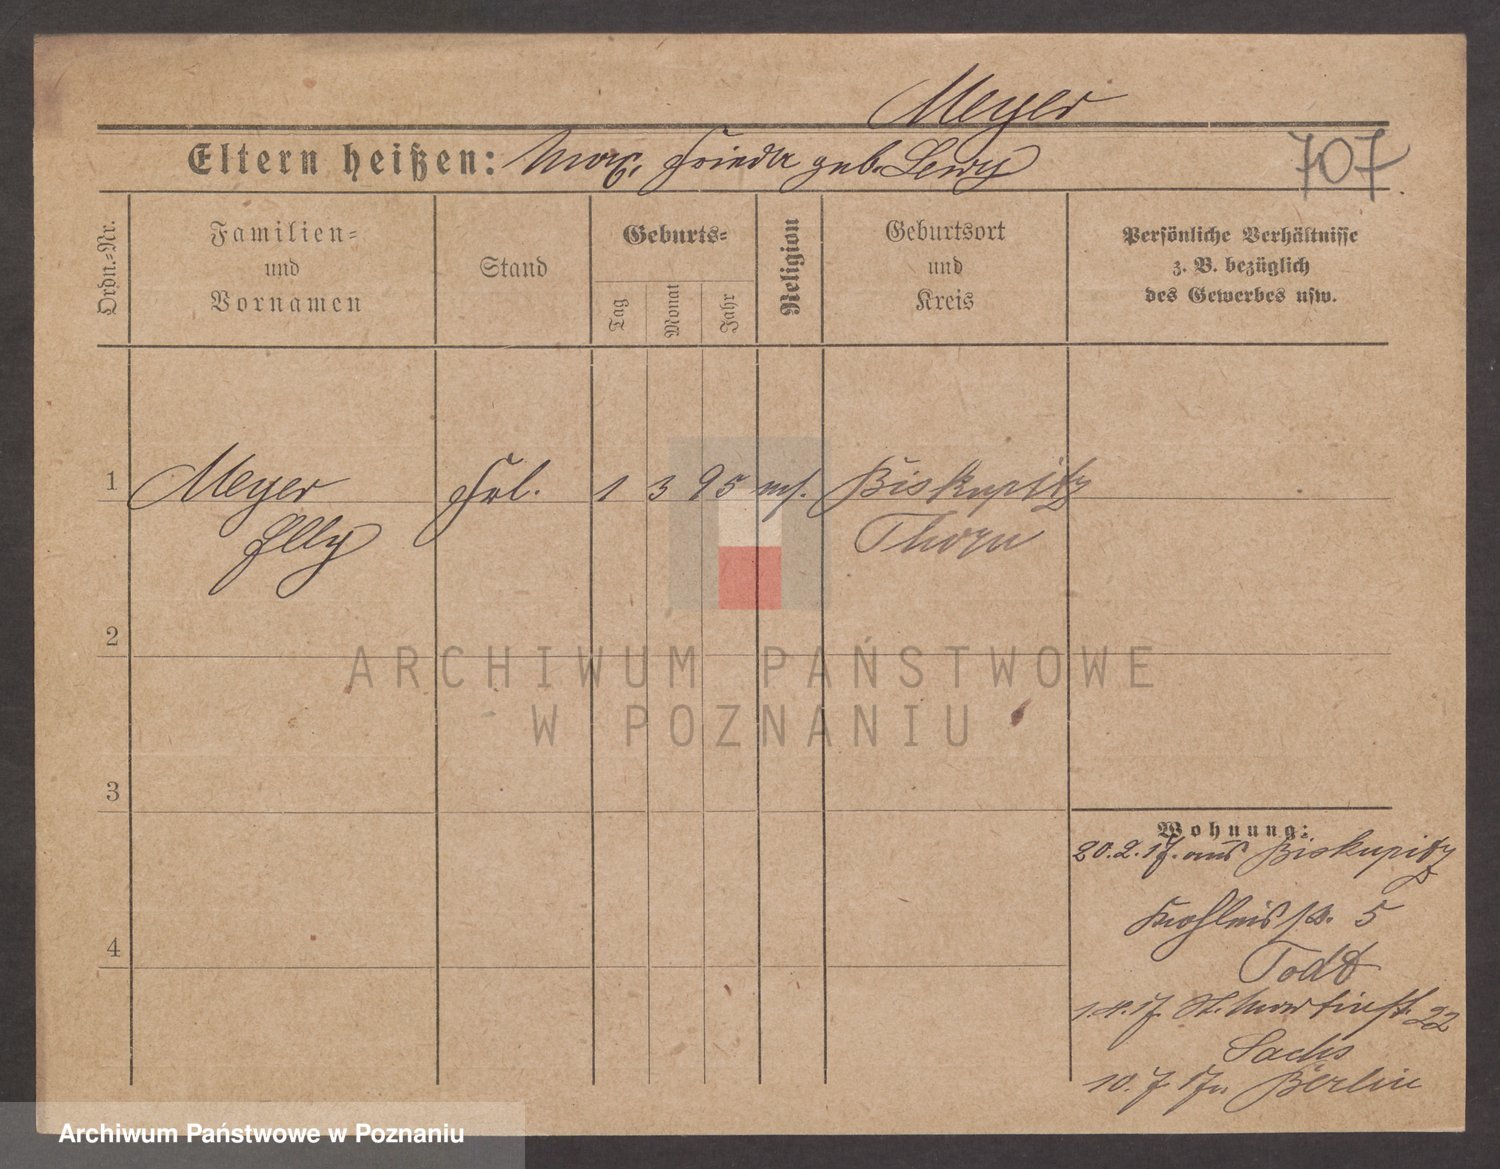 Meyer
Eltern heißen: Max, Frieda geb. Lewy
707
Ordn.-Nr.
Familien-
und
Vornamen
Stand
Geburts-
Tag
Monat
Jahr
Religion
Geburtsort
und
Kreis
Persönliche Verhältnisse
z. B. bezüglich
des Gewerbes usw.
1 Meyer Frl. 1 3 95 Biskupitz
Elly Thorn
2
3
4
Wohnung:
20.2.17. aus Biskupitz
5
Todt
1.4.17. St. Martinstr. 22
Sachs
10.7.17. Berlin
ARCHIWUM PAŃSTWOWE
W POZNANIU
Archiwum Państwowe w Poznaniu